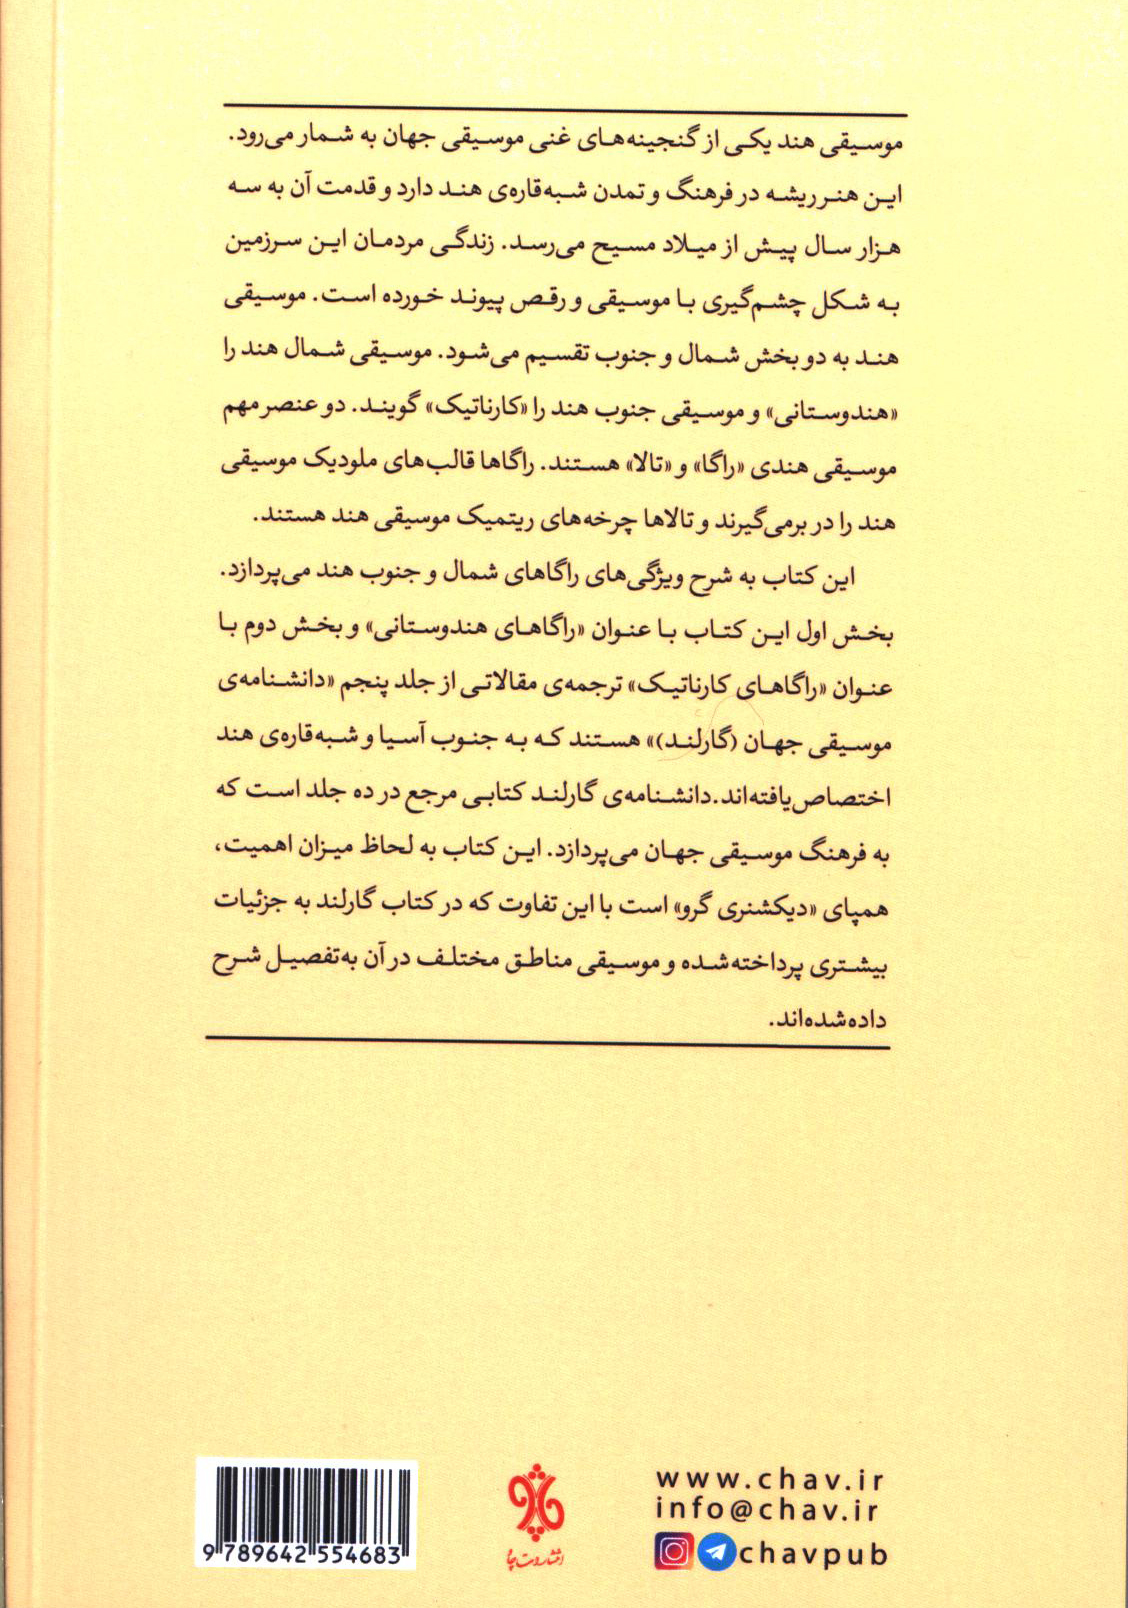 موسیقی هند یکی از گنجینه‌های غنی موسیقی جهان به شمار می‌رود.
این هنر ریشه در فرهنگ و تمدن شبه‌قاره‌ی هند دارد و قدمت آن به سه
هزار سال پیش از میلاد مسیح می‌رسد. زندگی مردمان این سرزمین
به شکل چشم‌گیری با موسیقی و رقص پیوند خورده است. موسیقی
هند به دو بخش شمال و جنوب تقسیم می‌شود. موسیقی شمال هند را
«هندوستانی» و موسیقی جنوب هند را «کارناتیک» گویند. دو عنصر مهم
موسیقی هندی «راگا» و «تالا» هستند. راگاها قالب‌های ملودیک موسیقی
هند را در برمی‌گیرند و تالاها چرخه‌های ریتمیک موسیقی هند هستند.
این کتاب به شرح ویژگی‌های راگاهای شمال و جنوب هند می‌پردازد.
بخش اول این کتاب با عنوان «راگاهای هندوستانی» و بخش دوم با
عنوان «راگاهای کارناتیک» ترجمه‌ی مقالاتی از جلد پنجم «دانشنامه‌ی
موسیقی جهان (گارلند)» هستند که به جنوب آسیا و شبه‌قاره‌ی هند
اختصاص‌یافته‌اند.دانشنامه‌ی گارلند کتابی مرجع در ده جلد است که
به فرهنگ موسیقی جهان می‌پردازد. این کتاب به لحاظ میزان اهمیت،
همپای «دیکشنری گرو» است با این تفاوت که در کتاب گارلند به جزئیات
بیشتری پرداخته‌شده و موسیقی مناطق مختلف در آن به‌تفصیل شرح
داده‌شده‌اند.
www.chav.ir
info@chav.ir
chavpub
9 789642 554683